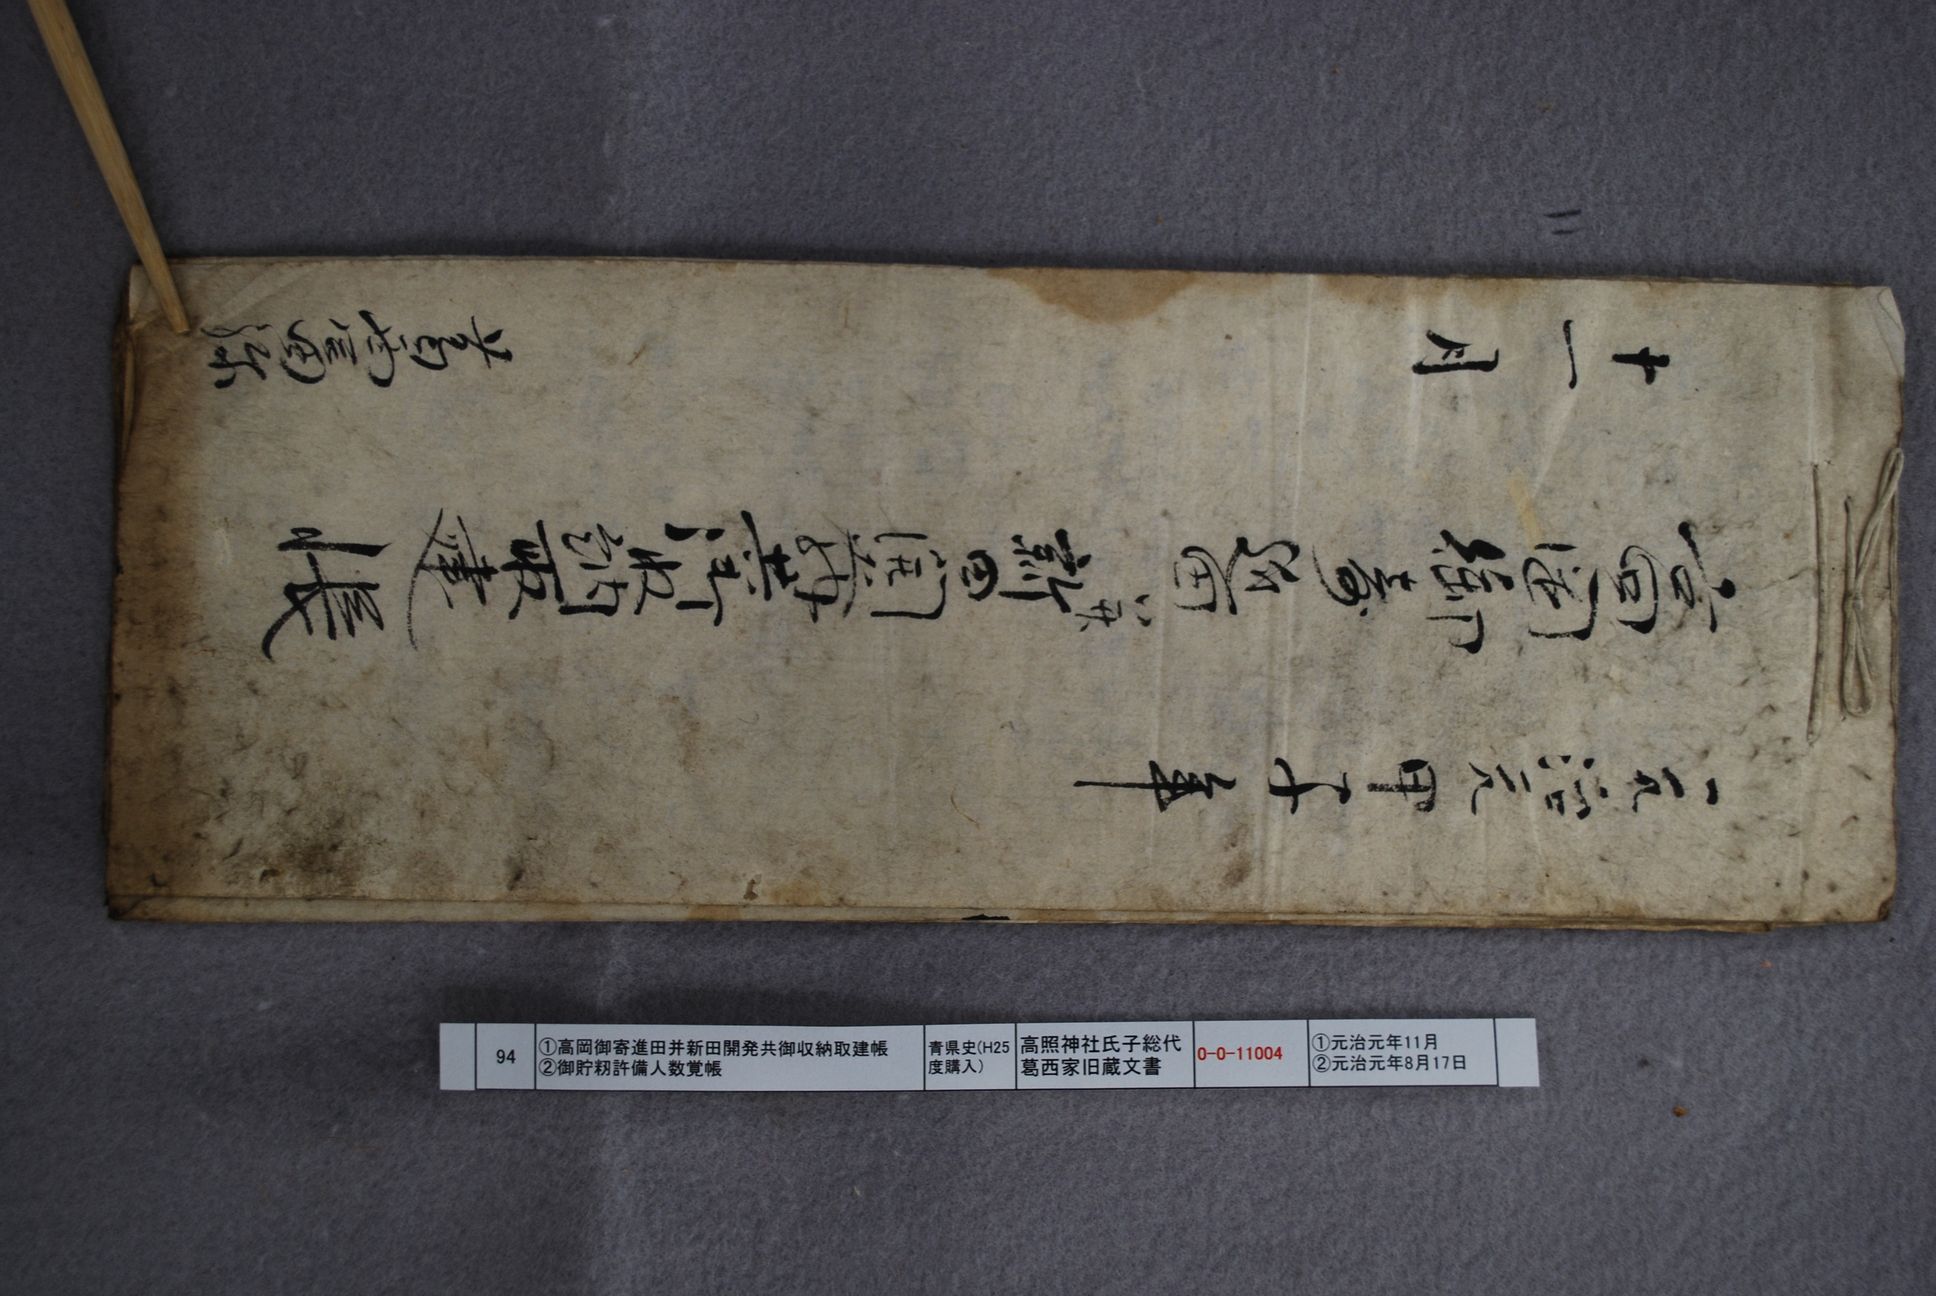 元治元甲子年
高岡御寄進田并新田開発共御収納取建帳
十一月
葛西
94
①高岡御寄進田并新田開発共御収納取建帳
②御貯籾許備人数覚帳
青県史(H25
度購入)
高照神社氏子総代
葛西家旧蔵文書
0-0-11004
①元治元年11月
②元治元年8月17日